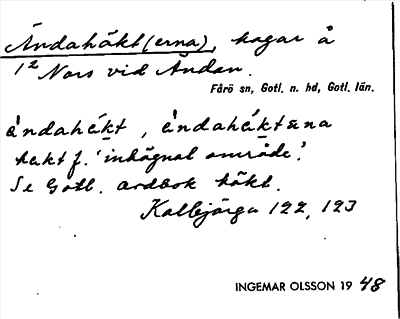 Ändahäkt(erna), hagar å
1/2 Nors vid Ändan.
Fårö sn, Gotl. n. hd, Gotl. län.
ẹ̀ndahẹ́kt, ẹ̀ndahẹ́ktana
hekt f. 'inhägnat område'.
Se Gotl. ordbok häkt.
Kalbjärga 122, 123
INGEMAR OLSSON 19 48